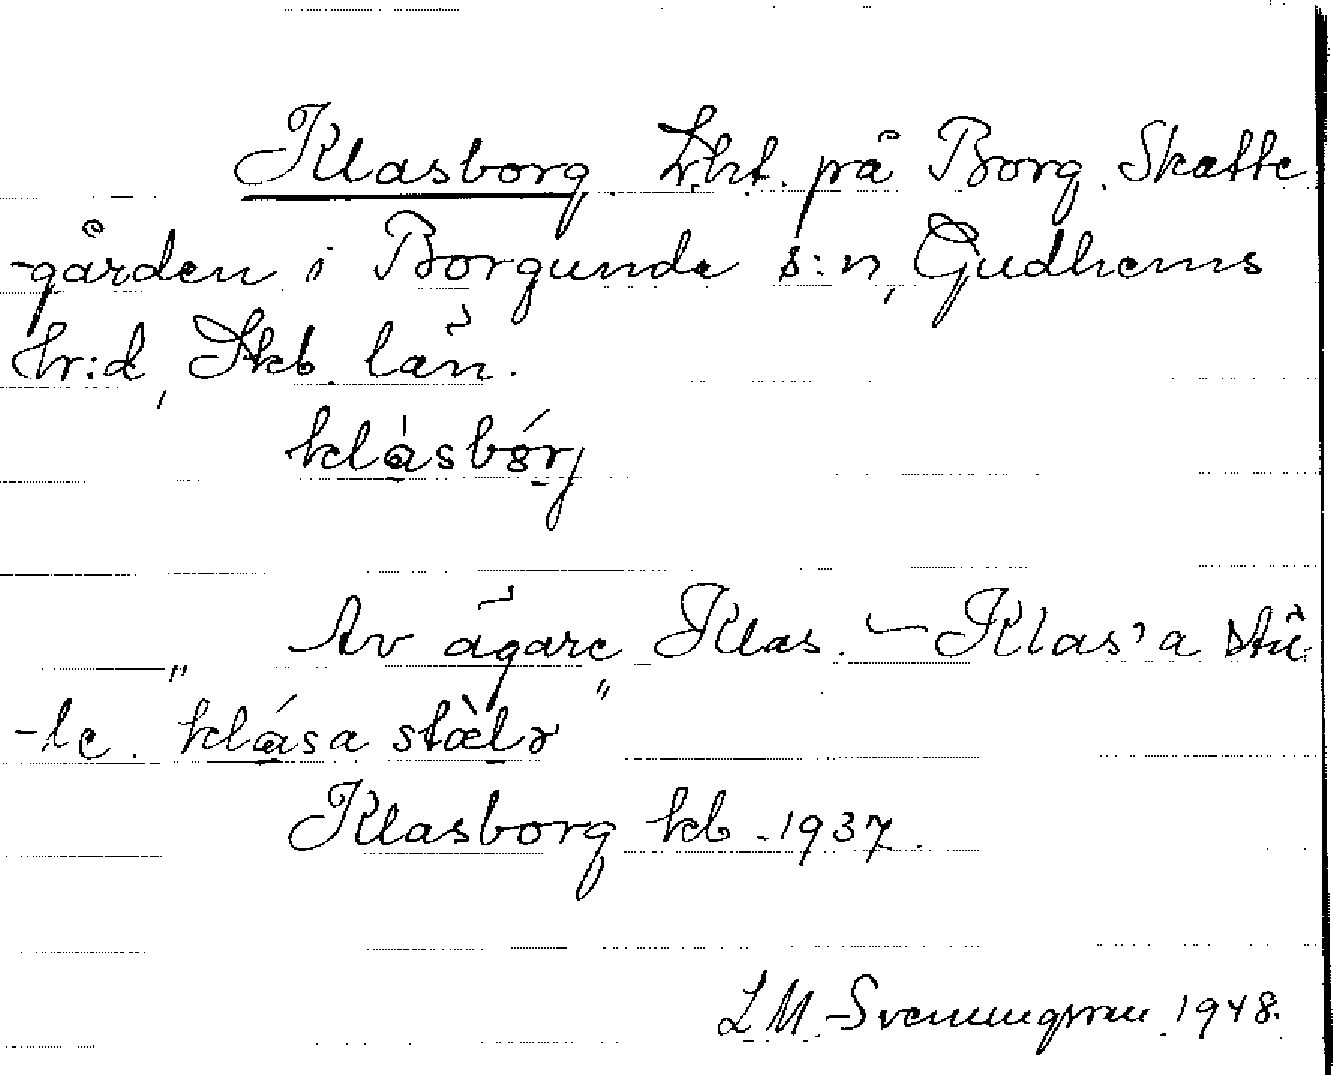 Klasborg. Lht. på Borg. Skatte
-gården i Borgunda s:n, Gudhems
hr:d, Skb. län.
klásbórj
Av ägare Klas. – Klas'a stä
-le. "klása stàlə"
Klasborg kb. 1937.
LM. Svenungsson 1948.